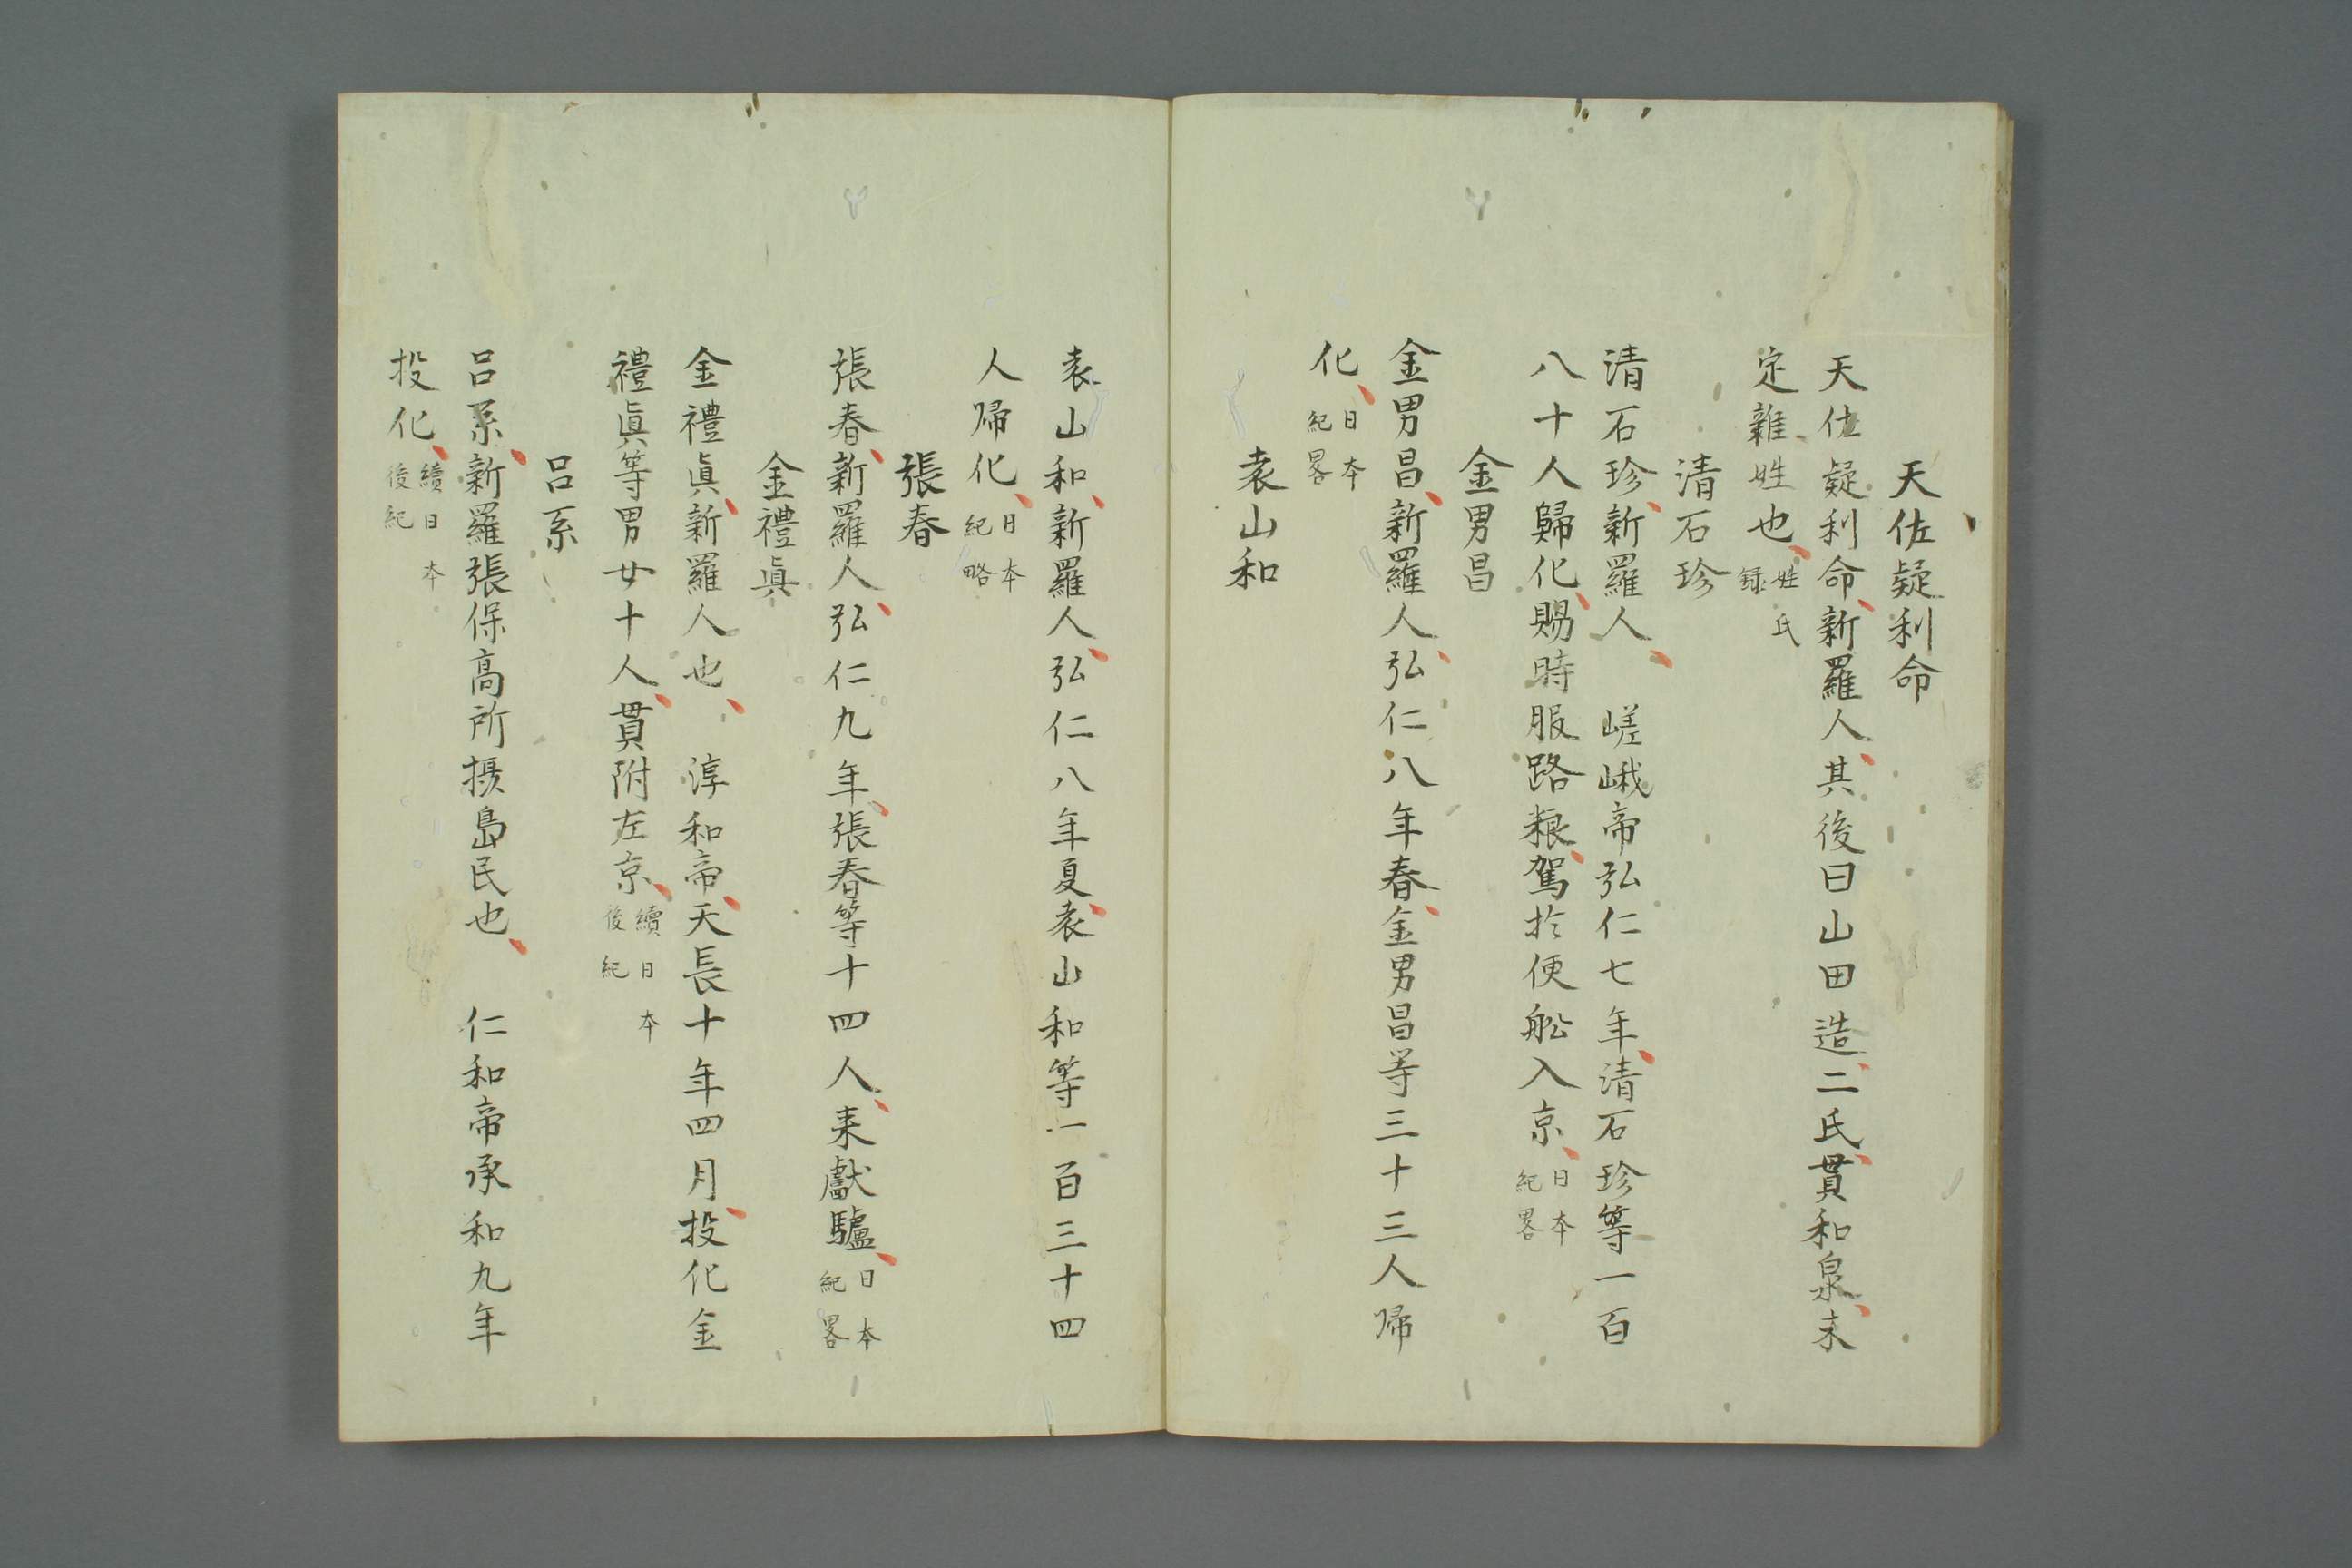 天佐疑利命
天佐疑利命、新羅人、其後曰山田造、二氏、貫和泉、未
定雜姓也、姓氏録
清石珍
清石珍、新羅人、嵯峨帝弘仁七年、清石珍等一百
八十人歸化、賜時服路粮、駕於便舩入京、日本紀畧
金男昌
金男昌、新羅人、弘仁八年春、金男昌等三十三人帰
化、日本紀畧
袁山和
袁山和、新羅人、弘仁八年夏、袁山和等一百三十四
人帰化、日本紀略
張春
張春、新羅人、弘仁九年、張春等十四人、来獻驢、日本紀畧
金禮眞
金禮眞、新羅人也、淳和帝、天長十年四月、投化金
禮眞等男女十人、貫附左京、續日本後紀
呂系
呂系、新羅張保高所摂島民也、仁和帝承和九年
投化、續日本後紀